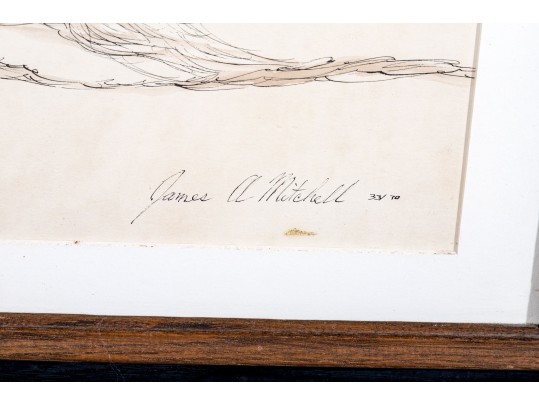 James A Mitchell 33/70